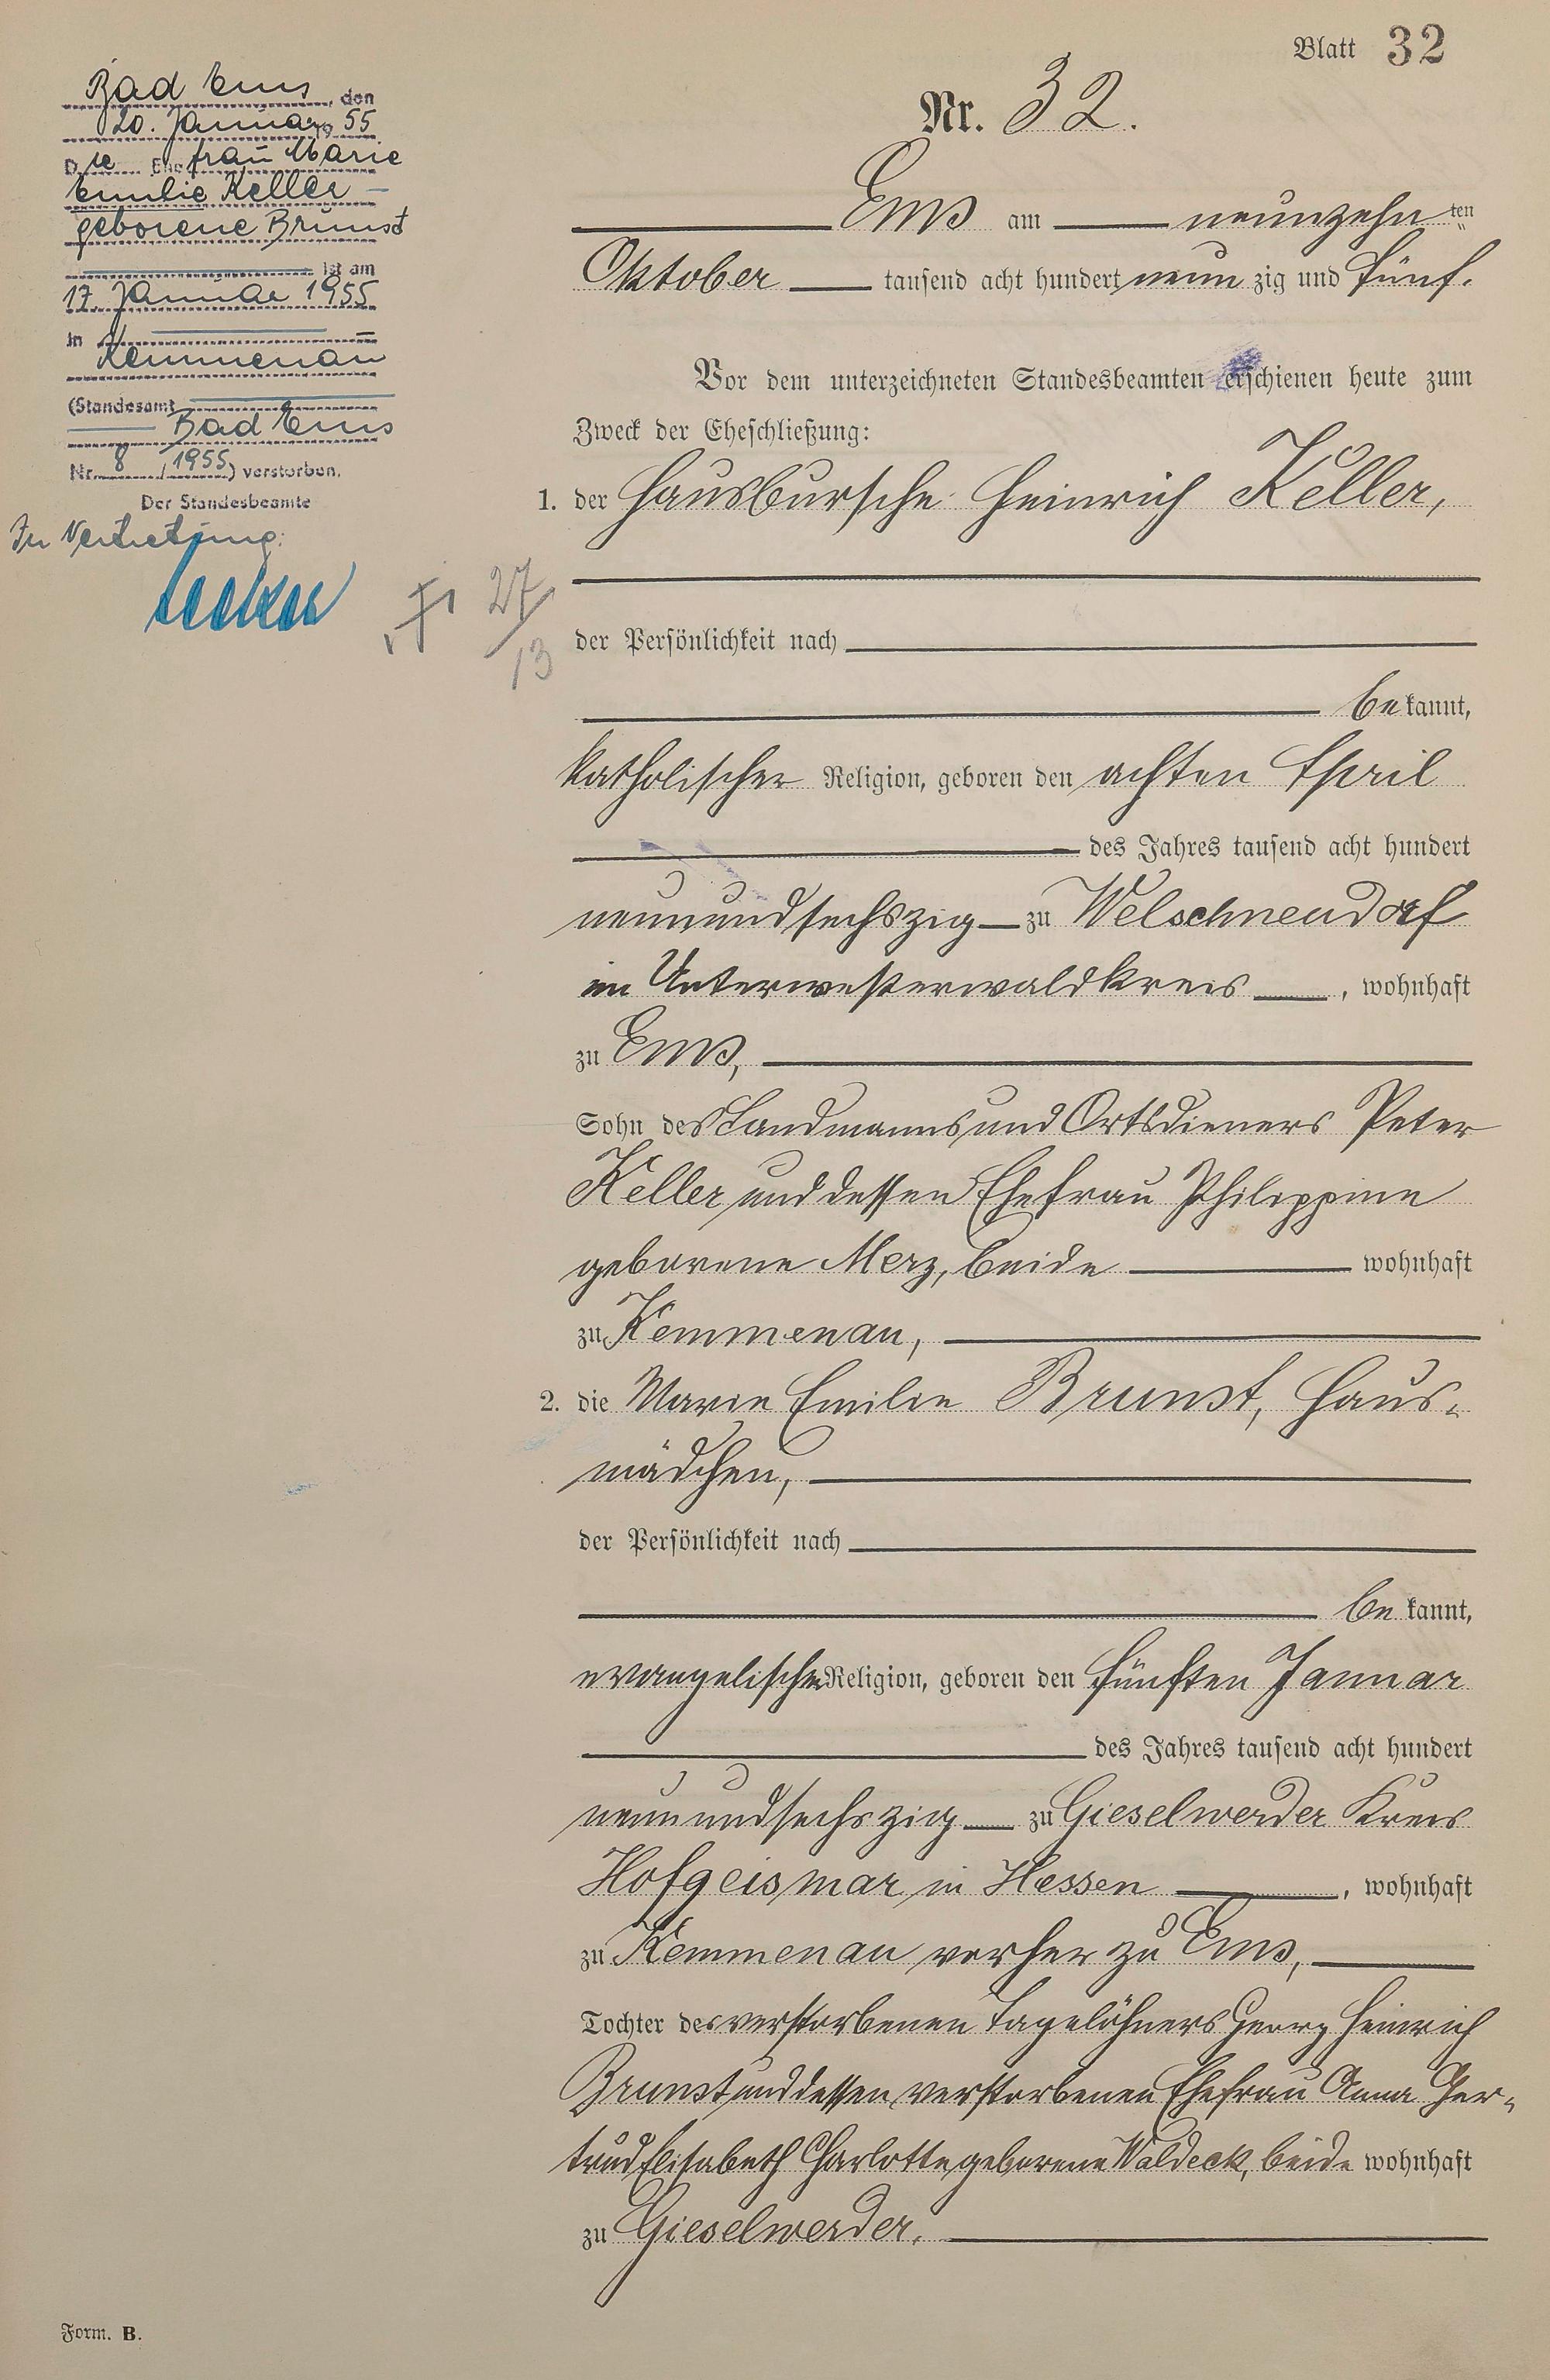 Blatt 32
Nr. 32.
Bad Ems, den
20. Januar 1955
Die Ehefrau Marie
Emilie Keller
geborene Brunst
ist am
17. Januar 1955
in
Kemmenau
(Standesamt
Bad Ems
Nr. 8 / 1955) verstorben.
Der Standesbeamte
In Vertretung:
27/13
Ems am neunzehn ten
Oktober tausend acht hundert neunzig und fünf.
Vor dem unterzeichneten Standesbeamten erschienen heute zum
Zweck der Eheschließung:
1. der Hausbursche Heinrich Keller,
der Persönlichkeit nach
bekannt,
katholischer Religion, geboren den achten April
des Jahres tausend acht hundert
neunundsechszig zu Welschneudorf
im Unterwesterwaldkreis, wohnhaft
zu Ems,
Sohn des Landmanns und Ortsdieners Peter
Keller und dessen Ehefrau Philippine
geborene Merz, beide wohnhaft
zu Kemmenau,
2. die Marie Emilie Brunst, Haus-
mädchen,
der Persönlichkeit nach
bekannt,
evangelischer Religion, geboren den fünften Januar
des Jahres tausend acht hundert
neunundsechszig zu Gieselwerder Kreis
Hofgeismar in Hessen, wohnhaft
zu Kemmenau vorher zu Ems,
Tochter des verstorbenen Tagelöhners Georg Heinrich
Brunst und dessen verstorbenen Ehefrau Anna Ger-
trud Elisabeth Charlotte geborene Waldeck, beide wohnhaft
zu Gieselwerder.
Form. B.